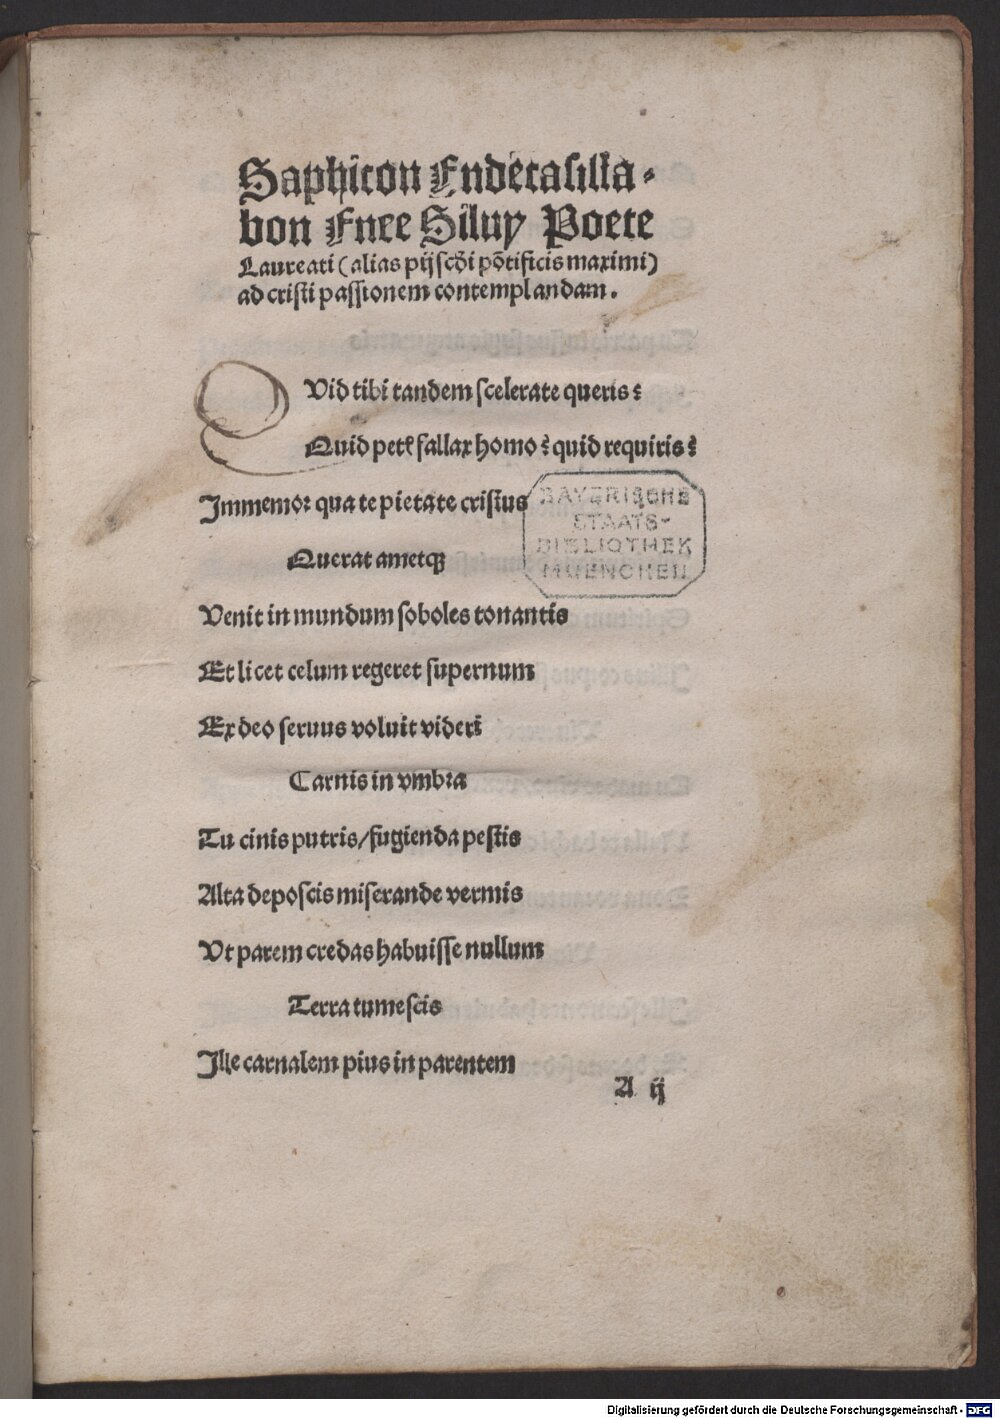 Saphicon Endecasilla⸗
bon Enee Siluij Poete
Laureati (alias pij scd̄i põtificis maximi)
ad cristi passionem contemplandam.
QVid tibi tandem scelerate queris?
Quid petꝭ fallax homo? quid requiris?
Immemor qua te pietate cristus
Querat ametqꝫ
Venit in mundum soboles tonantis
Et licet celum regeret supernum
Ex deo seruus voluit videri
Carnis in vmbra
Tu cinis putris/fugienda pestis
Alta deposcis miserande vermis
Vt parem credas habuisse nullum
Terra tumescis
Ille carnalem pius in parentem
A ij
BAYERISCHE
STAATS-
BIBLIOTHEK
MUENCHEN
Digitalisierung gefördert durch die Deutsche Forschungsgemeinschaft - DFG